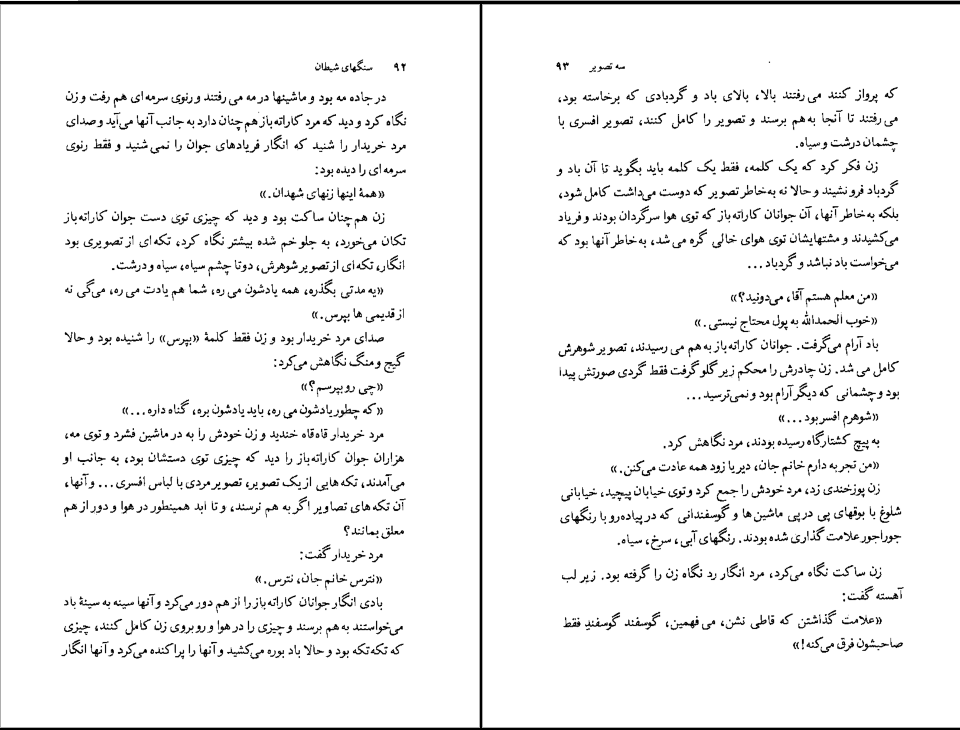 ۹۲ سنگهای شیطان
در جاده مه بود و ماشینها در مه می رفتند و رنوی سرمه ای هم رفت و زن
نگاه کرد و دید که مرد کاراته باز هم چنان دارد به جانب آنها می‌آید و صدای
مرد خریدار را شنید که انگار فریادهای جوان را نمی شنید و فقط رنوی
سرمه ای را دیده بود:
«همهٔ اینها زنهای شهدان.»
زن هم چنان ساکت بود و دید که چیزی توی دست جوان کاراته باز
تکان می‌خورد، به جلو خم شده بیشتر نگاه کرد، تکه ای از تصویری بود
انگار، تکه ای از تصویر شوهرش، دوتا چشم سیاه، سیاه و درشت.
«یه مدتی بگذره، همه یادشون می ره، شما هم یادت می ره، می‌گی نه
از قدیمی ها بپرس.»
صدای مرد خریدار بود و زن فقط کلمهٔ «بپرس» را شنیده بود و حالا
گیج و منگ نگاهش می‌کرد:
«چی رو بپرسم؟»
«که چطور یادشون می ره، باید یادشون بره، گناه داره...»
مرد خریدار قاه قاه خندید و زن خودش را به در ماشین فشرد و توی مه،
هزاران جوان کاراته باز را دید که چیزی توی دستشان بود، به جانب او
می‌آمدند، تکه هایی از یک تصویر، تصویر مردی با لباس افسری... و آنها،
آن تکه های تصاویر اگر به هم نرسند، و تا ابد همینطور در هوا و دور از هم
معلق بمانند؟
مرد خریدار گفت:
«نترس خانم جان، نترس.»
بادی انگار جوانان کاراته باز را از هم دور می‌کرد و آنها سینه به سینهٔ باد
می‌خواستند به هم برسند و چیزی را در هوا و روبروی زن کامل کنند، چیزی
که تکه تکه بود و حالا باد بوره می‌کشید و آنها را پراکنده می‌کرد و آنها انگار
سه تصویر ۹۳
که پرواز کنند می رفتند بالا، بالای باد و گردبادی که برخاسته بود،
می رفتند تا آنجا به هم برسند و تصویر را کامل کنند، تصویر افسری با
چشمان درشت و سیاه.
زن فکر کرد که یک کلمه، فقط یک کلمه باید بگوید تا آن باد و
گردباد فرو نشیند و حالا نه به خاطر تصویر که دوست می‌داشت کامل شود،
بلکه به خاطر آنها، آن جوانان کاراته باز که توی هوا سرگردان بودند و فریاد
می‌کشیدند و مشتهایشان توی هوای خالی گره می شد، به خاطر آنها بود که
می‌خواست باد نباشد و گردباد...
«من معلم هستم آقا، می‌دونید؟»
«خوب الحمدالله به پول محتاج نیستی.»
باد آرام می‌گرفت. جوانان کاراته باز به هم می رسیدند، تصویر شوهرش
کامل می شد. زن چادرش را محکم زیر گلو گرفت فقط گردی صورتش پیدا
بود و چشمانی که دیگر آرام بود و نمی‌ترسید...
«شوهرم افسر بود...»
به پیچ کشتارگاه رسیده بودند، مرد نگاهش کرد.
«من تجربه دارم خانم جان، دیر یا زود همه عادت می‌کنن.»
زن پوزخندی زد، مرد خودش را جمع کرد و توی خیابان پیچید، خیابانی
شلوغ با بوقهای پی در پی ماشین ها و گوسفندانی که در پیاده رو با رنگهای
جوراجور علامت گذاری شده بودند. رنگهای آبی، سرخ، سیاه.
زن ساکت نگاه می‌کرد، مرد انگار رد نگاه زن را گرفته بود. زیر لب
آهسته گفت:
«علامت گذاشتن که قاطی نشن، می فهمین، گوسفند گوسفندِ فقط
صاحبشون فرق می‌کنه!»